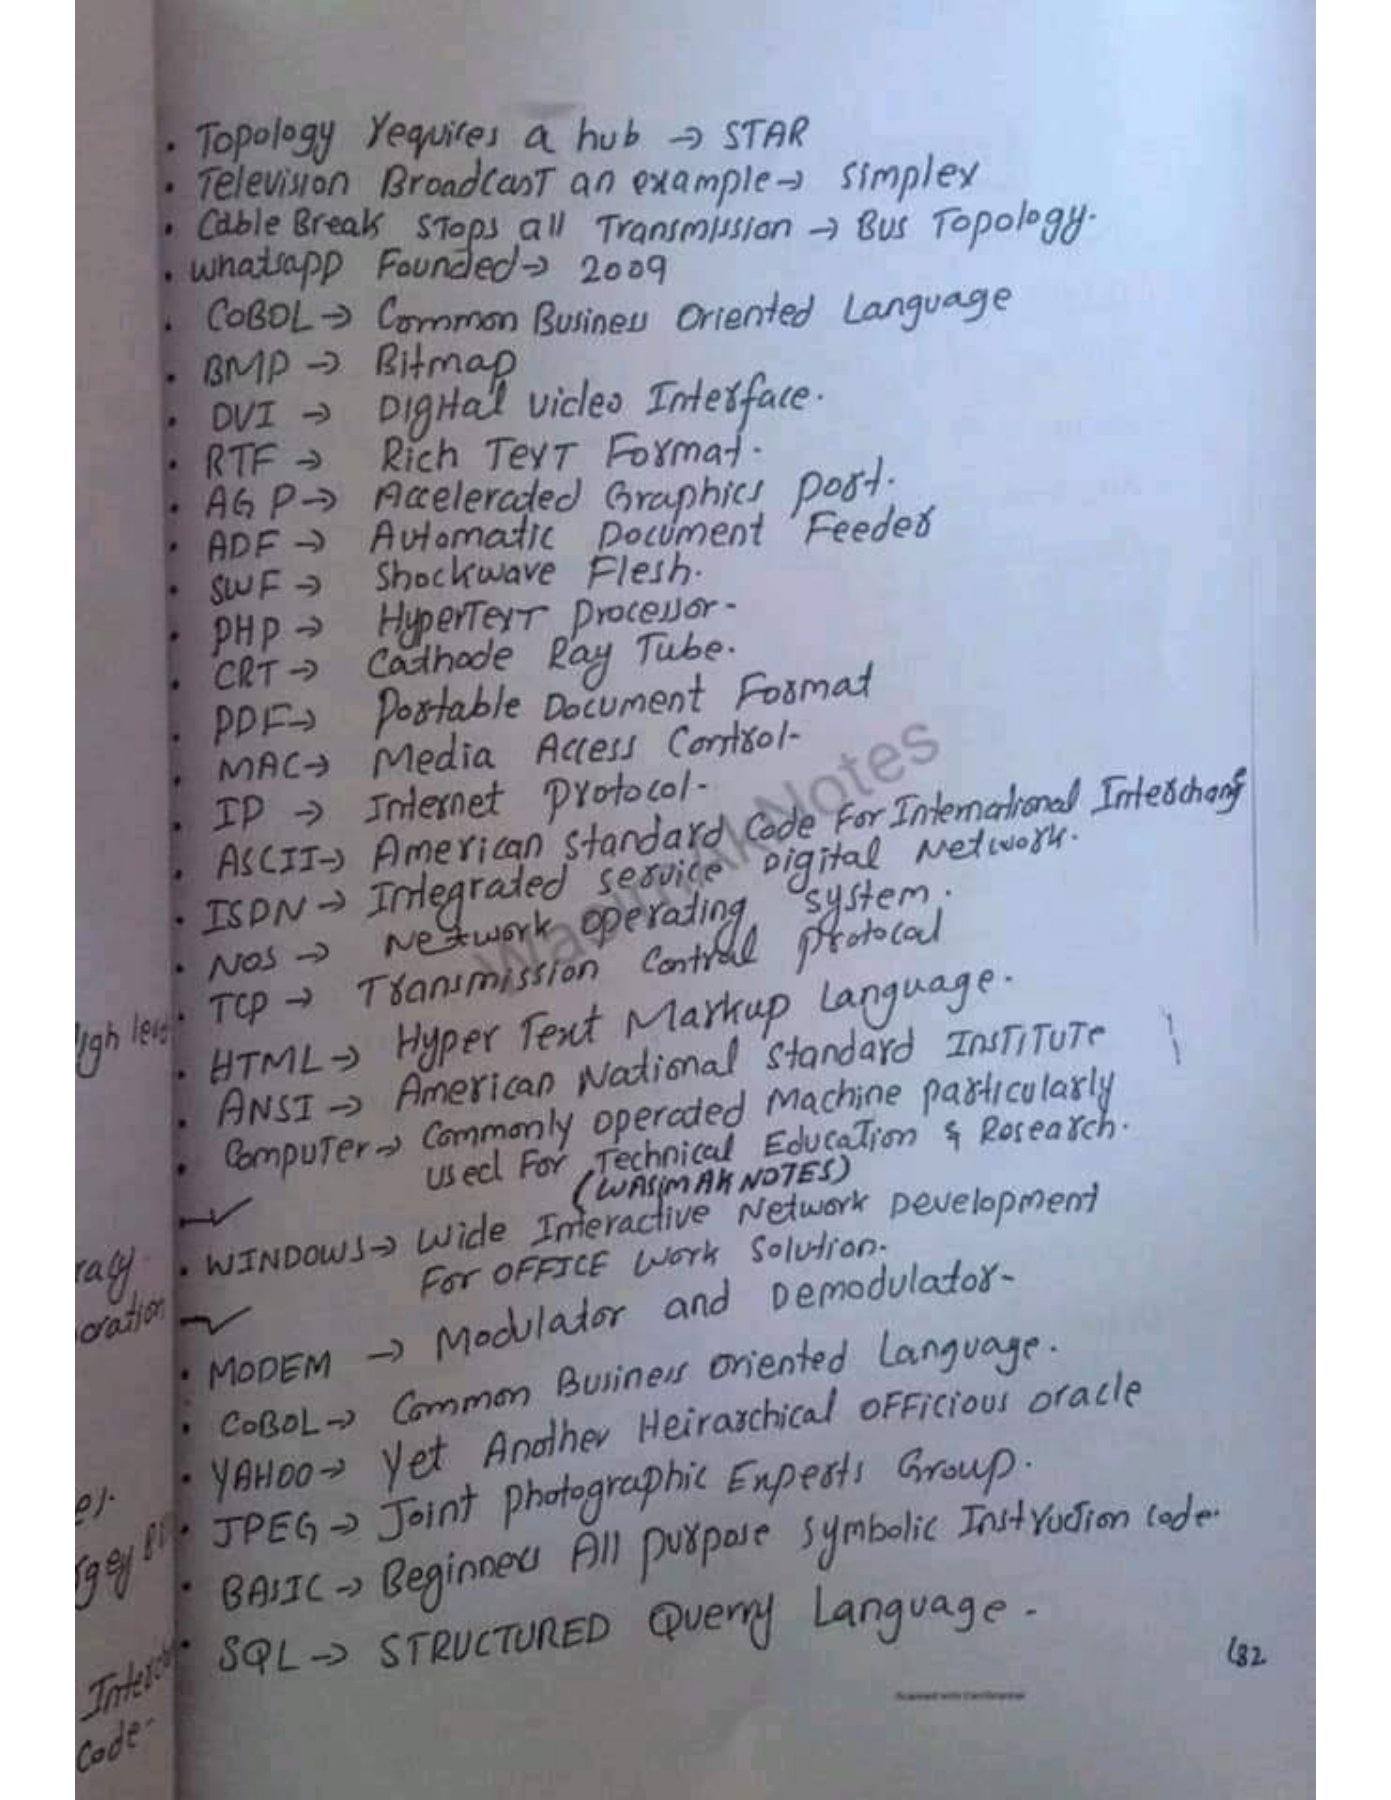 • Topology requires a hub → STAR
• Television Broadcast an example → simplex
• Cable Break stops all Transmission → Bus Topology.
• whatsapp Founded → 2009
• COBOL → Common Business Oriented Language
• BMP → Bitmap
• DVI → Digital video Interface.
• RTF → Rich Text Format.
• AGP → Accelerated Graphics port.
• ADF → Automatic Document Feeder
• SWF → Shockwave Flesh.
• PHP → HyperText processor-
• CRT → Cathode Ray Tube.
• PDF → Portable Document Format
• MAC → Media Access Control-
• IP → Internet protocol-
• ASCII → American standard Code For International Interchang
• ISDN → Integrated service Digital Network.
• NOS → Network operating system.
• TCP → Transmission Control protocal
• HTML → Hyper Text Markup Language.
• ANSI → American National Standard INSTITUTE
• Computer → Commonly operated Machine particularly
used For Technical Education & Research.
(WASIM AK NOTES)
• WINDOWS → Wide Interactive Network Development
For OFFICE Work Solution.
• MODEM → Modulator and Demodulator-
• COBOL → Common Business oriented Language.
• YAHOO → Yet Another Heirarchical officious oracle
• JPEG → Joint photographic Experts Group.
• BASIC → Beginners All purpose symbolic Instruction code.
• SQL → STRUCTURED Querry Language.
182
Scanned with CamScanner
WasimAkNotes
racy.
oration
Code-